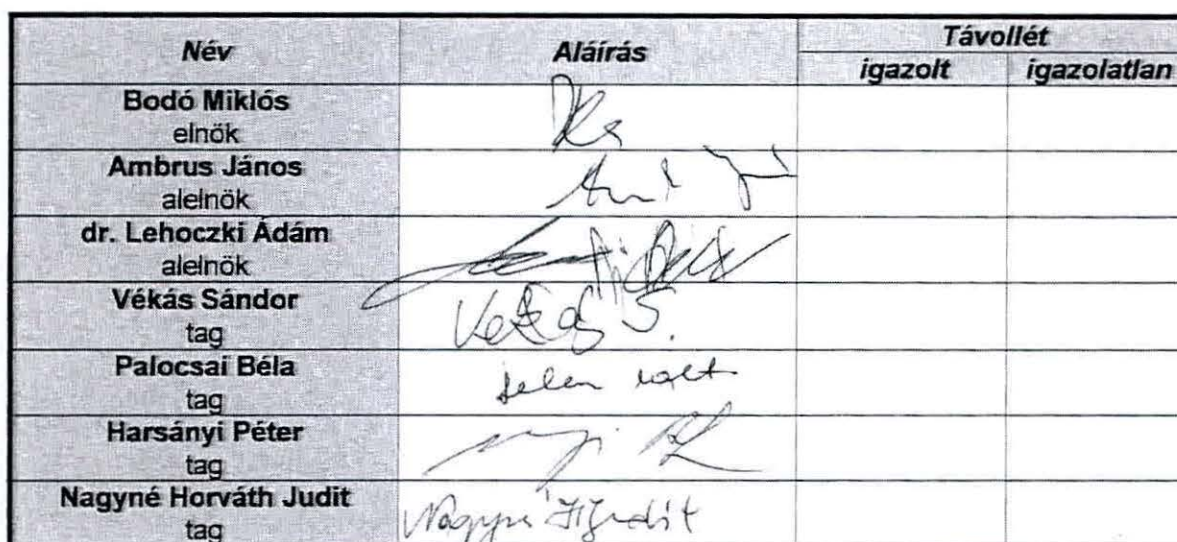 Név Aláírás Távollét
igazolt igazolatlan
Bodó Miklós
elnök
Ambrus János
alelnök
dr. Lehoczki Ádám
alelnök
Vékás Sándor
tag
Vékás S.
Palocsai Béla
tag
jelen volt
Harsányi Péter
tag
Nagyné Horváth Judit
tag
Nagyné H Judit